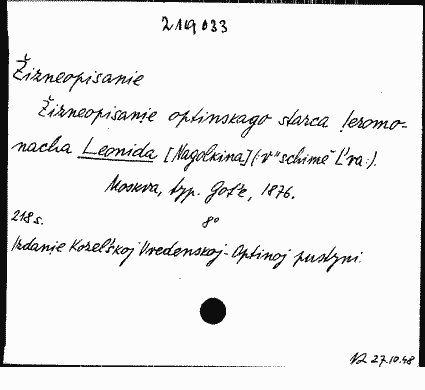 219033
Žizneopisanie
Žizneopisanie optinskago starca Ieromo-
nacha Leonida [Nagolkina] (:v" schimě L'va:).
Moskva, typ. Got'e, 1876.
218 s. 8°
Izdanie Kozel'skoj Vvedenskoj-Optinoj pustyni.
27.10.48